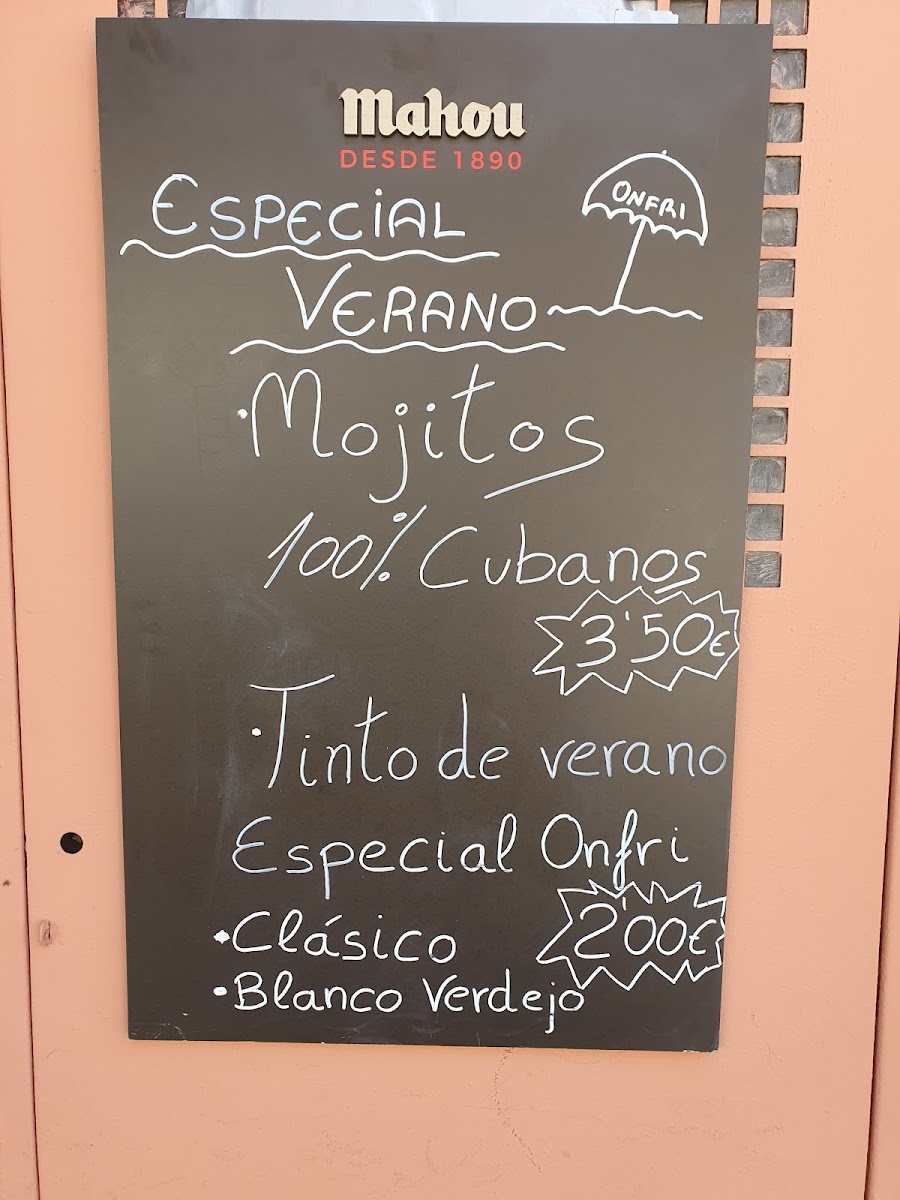 Mahou
DESDE 1890
ESPECIAL
ONFRI
VERANO
·Mojitos
100% Cubanos
3'50€
·Tinto de verano
Especial Onfri
·Clásico
2'00€
·Blanco Verdejo